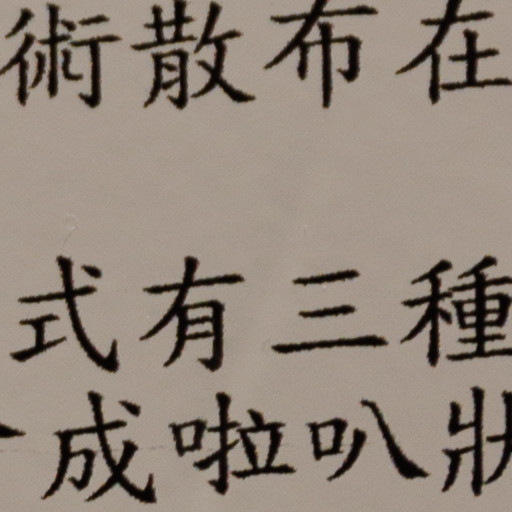 術散布在
式有三種
成啦叭狀